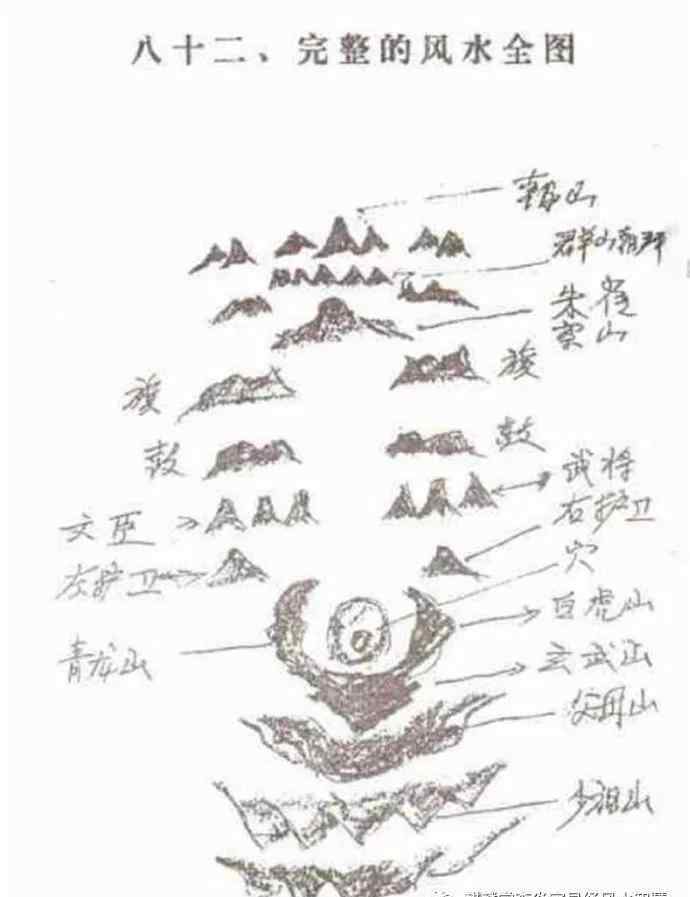 八十二、完整的风水全图
朝山
群山朝拜
朱雀
案山
旗
旗
鼓
鼓
武将
文臣
右护卫
左护卫
穴
白虎山
青龙山
玄武山
父母山
少祖山